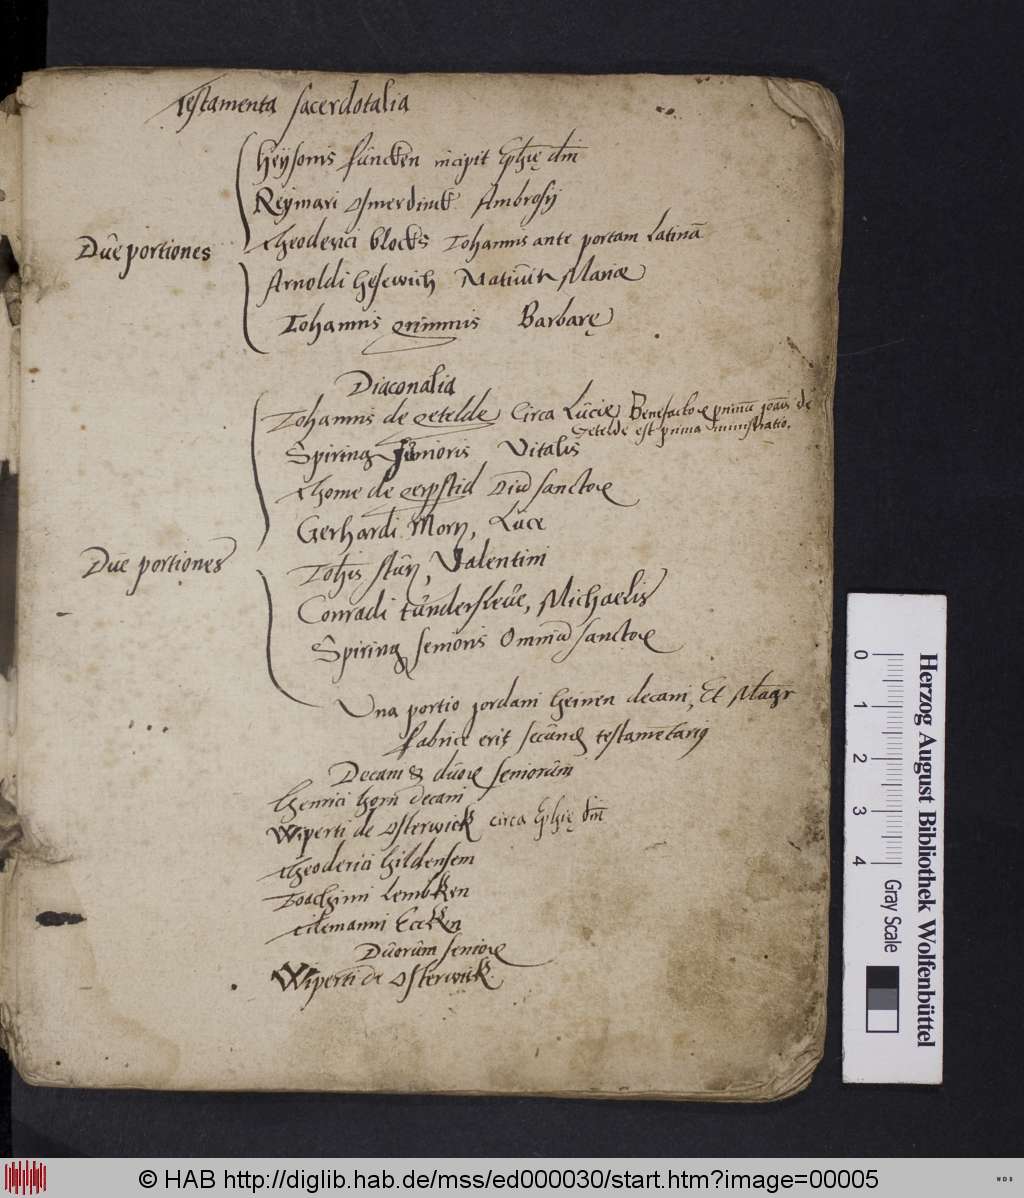 Testamenta sacerdotalia
Heysonis funcken incipit Ephie dm
Reymari Osmerdinck Ambrosij
Theoderici blocks Iohannis ante portam latinā
Due portiones
Arnoldi hesewich Natiuit Marie
Iohannis Barbarę
Diaconalia
Iohannis de zetelde Circa Lucie Benefactor primū joāis de
Zetelde est prima ministratio.
Spiring Junioris Vitalis
Thome de zerpstid Diui sanctor
Gerhardi Morn, Luce
Due portiones
Tohis sturn, Valentini
Conradi tundersleue, Michaelis
Spiring senioris Omniū sanctor
Una portio jordani heinen decani, Et Magr
fabrice erit secundo testametarij
Decani & duor seniorum
Henrici horn decani
Wiperti de Osterwick circa Ephię dm
Theoderici hildensem
Ioachimi lembken
Tilemanni Ecken
Duorum senior
Wiperti de Osterwick
Herzog August Bibliothek Wolfenbüttel
0 1 2 3 4
Gray Scale
© HAB http://diglib.hab.de/mss/ed000030/start.htm?image=00005